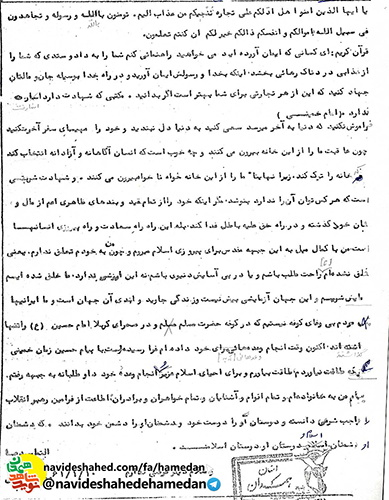 یا ایها الذین امنوا هل ادلکم علی تجارة تنجیکم من عذاب الیم. تومنون بالله و رسوله و تجاهدون
فی سبیل الله باموالکم و انفسکم ذالکم خیر لکم ان کنتم تعلمون.
قرآن کریم: ای کسانی که ایمان آورده اید می خواهید راهنمائی کنم شما را به داد و ستدی که شما را
از عذابی دردناک رهائی بخشد: اینکه بخدا و رسولش ایمان آورید و در راه خدا بوسیله جان و مالتان
جهاد کنید که این از هر تجارتی برای شما بهتر است اگر بدانید. مکتبی که شهادت دارد اسارت
ندارد (امام خمینی)
فراموش نکنید که دنیا به آخر میرسد سعی کنید به دنیا دل نبندید و خود را مهیای سفر آخرت کنید
چون عاقبت ما را از این خانه بیرون می کنند و چه خوب است که انسان آگاهانه و آزادانه انتخاب کند
خانه را ترک کند، زیرا نهایتا ما را از این خانه خواه نا خواه بیرون می کنند. و شهادت شربتی
است که هر کس توان آن را ندارد بنوشد، مگر اینکه خود را از تمام قید و بندهای ظاهری اعم از مال و
جان خود گذشته و در راه حق علیه باطل فدا کند، بله این راه راه سعادت و راه پیروزی انسانهاست
است من با کمال میل به این جبهه مقدس برای پیروزی اسلام میروم و چون به خودم تعلق ندارم. یعنی
خلق نشده ام راحت طلب باشم و یا در پی آسایش دنیوی باشم نه این ارزشی ندارد. ما خلق شده ایم
و این جهان آزمایشی بیش نیست و زندگی جاوید و ابدی آن جهان است و ما ایرانیها
مردم بی وفای کوفه نیستیم که در کوفه حضرت مسلم و در صحرای کربلا امام حسین (ع) را تنها
گذاشته اند. اکنون وقت انجام وعده هائی برای خود داده ام فرا رسیده است با پیام حسین زمان خمینی
طاقت نیاوردم و برای احیای اسلام عزیز و انجام وعده خود داوطلبانه به جبهه رفتم.
پیام من به خانواده ام و تمام اقوام و آشنایان و تمام خواهران و برادران: اطاعت از فرامین رهبر انقلاب
را واجب شرعی دانسته و دوستان او را دوست خود و دشمنان او را دشمن خود بدانند. که دشمنان
او دشمنان اسلام و دوستان او دوستان اسلامند.
navideshahed.com/fa/hamedan
@navideshahedehamedan